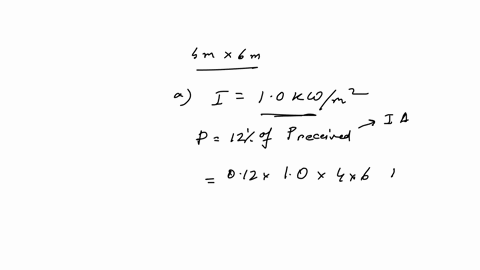 4m × 6m
a) I = 1.0 kW/m²
P = 12% of P received → IA
= 0.12 × 1.0 × 4 × 6